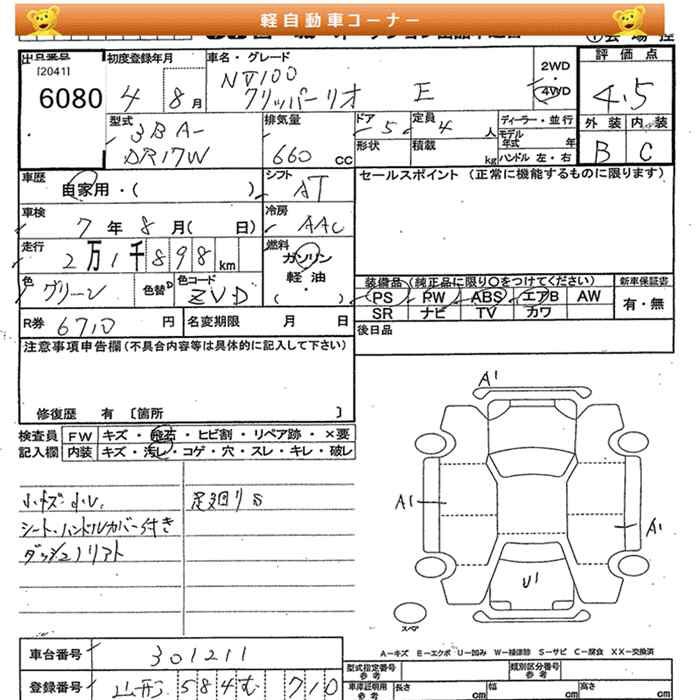 軽自動車コーナー
出品番号
[2041]
6080
初度登録年月
4 8月
車名・グレード
NV100
クリッパーリオ E
2WD
4WD
評価点
4.5
外装 内装
B C
型式
3BA-
DR17W
排気量
660 cc
ドア 5
定員 4 人
形状
積載 kg
ディーラー・並行
モデル年式 年
ハンドル 左・右
車歴
自家用・( )
シフト
AT
セールスポイント (正常に機能するものに限ります)
車検
7年 8月( 日)
冷房
AAC
走行
2万1千898km
燃料
ガソリン
軽油
・
( )
色
グリーン
色替
色コード
ZVD
装備品(純正品に限り○をつけてください)
PS PW ABS エアB AW
SR ナビ TV カワ
新車保証書
有・無
R券 6710 円
名変期限 月 日
後日品
注意事項申告欄(不具合内容等は具体的に記入して下さい)
修復歴 有 〔箇所 〕
検査員
記入欄
FW キズ・飛石・ヒビ割・リペア跡・×要
内装 キズ・汚レ・コゲ・穴・スレ・キレ・破レ
小キズ・小U、
シート・ハンドルカバー付き
足廻りS
A1
A1
A1
U1
スペア
A−キズ E−エクボ U−凹み W−補修跡 S−サビ C−腐食 XX−交換済
車台番号 301211
登録番号 山形 584 む 710
型式指定番号
参考
類別区分番号
参考
車庫証明用
参考
長さ cm
幅 cm
高さ cm